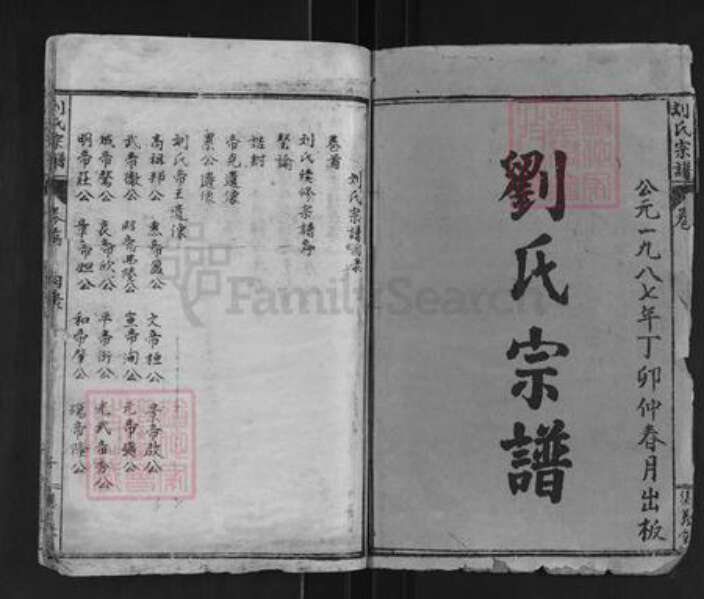 公元一九八七年丁卯仲春月出板
劉氏宗譜
刘氏宗譜 卷
刘氏宗譜目录
卷首
刘氏续修宗譜序
聖諭
誥封
帝尧遺像
累公遺像
刘氏帝王遺像
高祖邦公 惠帝盈公 文帝恒公 景帝啟公
武帝徹公 昭帝弗陵公 宣帝洵公 元帝奭公
成帝驁公 哀帝欣公 平帝衎公 光武帝秀公
明帝莊公 章帝炟公 和帝肇公 殤帝隆公
刘氏宗譜 卷首 目录
FamilySearch